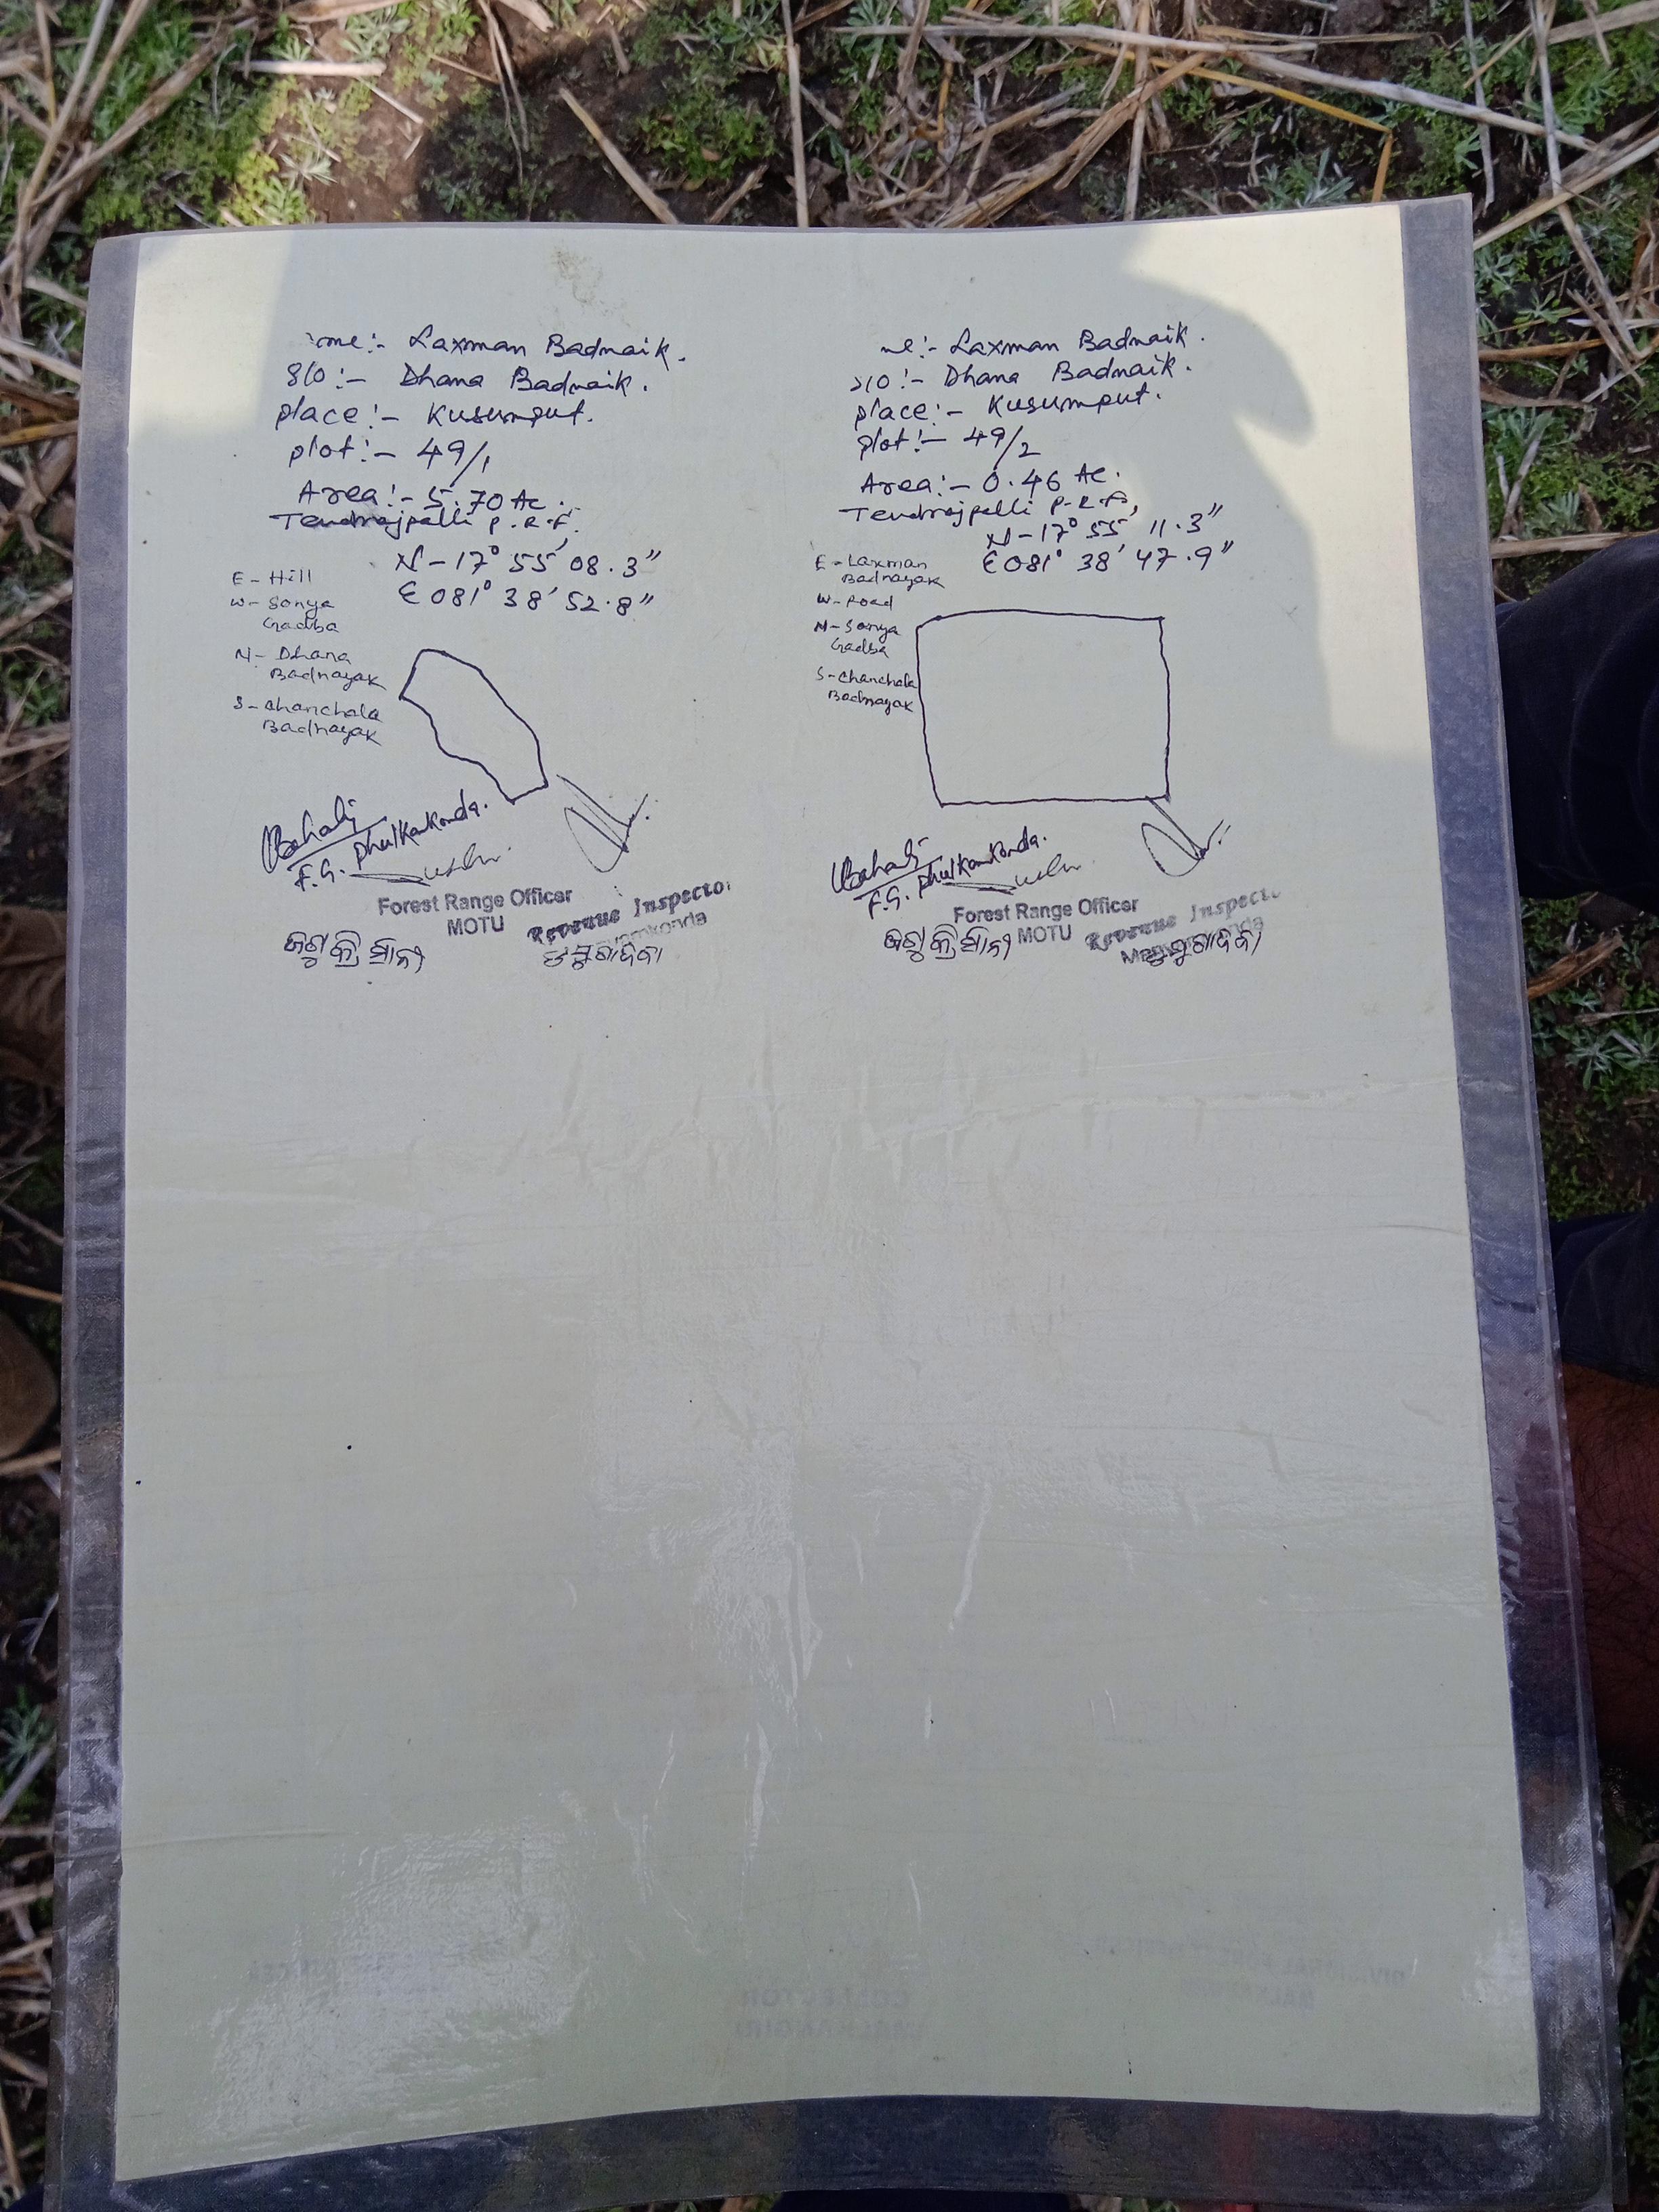 me:- Laxman Badnaik.
S/o:- Dhana Badnaik.
place:- Kusumput.
plot:- 49/1
Area:- 5.70 Ac.
Tendrajpalli P.R.F.
N-17° 55' 08.3"
E 081° 38' 52.8"
E- Hill
W- Sonya
Gadba
N- Dhana
Badnayak
S- Chanchala
Badnayak
F.G. Phulkankonda.
Forest Range Officer
MOTU
Revenue Inspector
me:- Laxman Badnaik.
S/o:- Dhana Badnaik.
place:- Kusumput.
plot:- 49/2
Area:- 0.46 Ac.
Tendrajpalli P.R.F,
N-17° 55' 11.3"
E 081° 38' 47.9"
E- Laxman
Badnayak
W- Road
N- Sonya
Gadba
S- Chanchala
Badnayak
F.G. Phulkankonda.
Forest Range Officer
MOTU
Revenue Inspect
COLLECTOR
MALKANGIRI